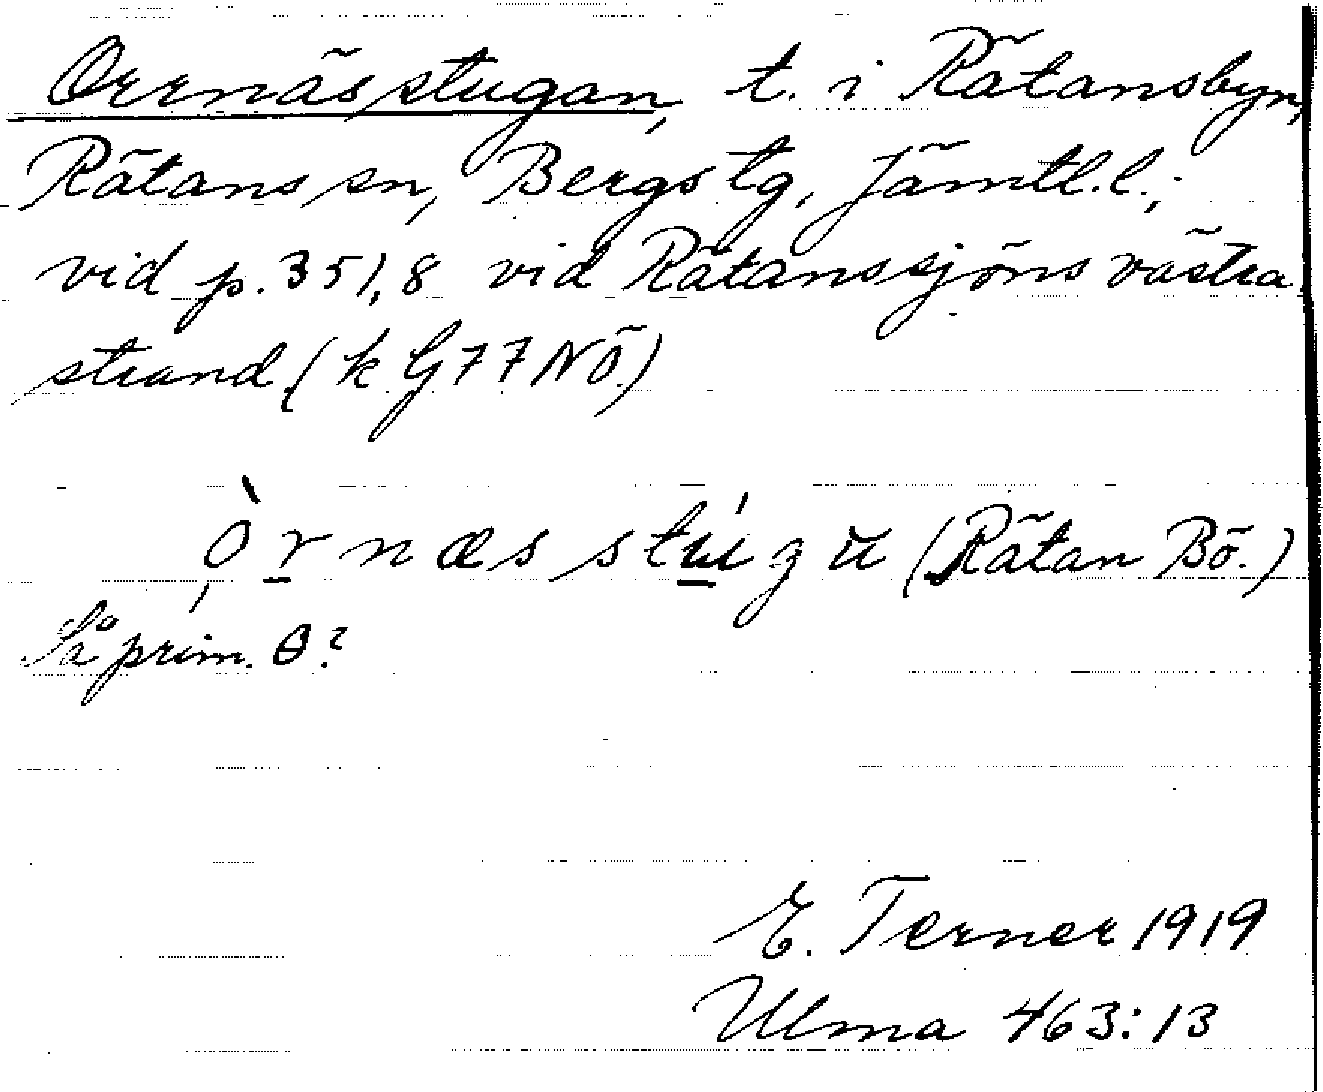 Orrnässtugan, t. i Rätansbyn,
Rätans sn, Bergs tg, Jämtl.l.;
vid p. 351,8 vid Rätanssjöns västra
strand (k G77NÖ)
ǫ̀rnæsstúgu (Rätan Bö.)
Så prim. θ?
E. Terner 1919
Ulma 463:13